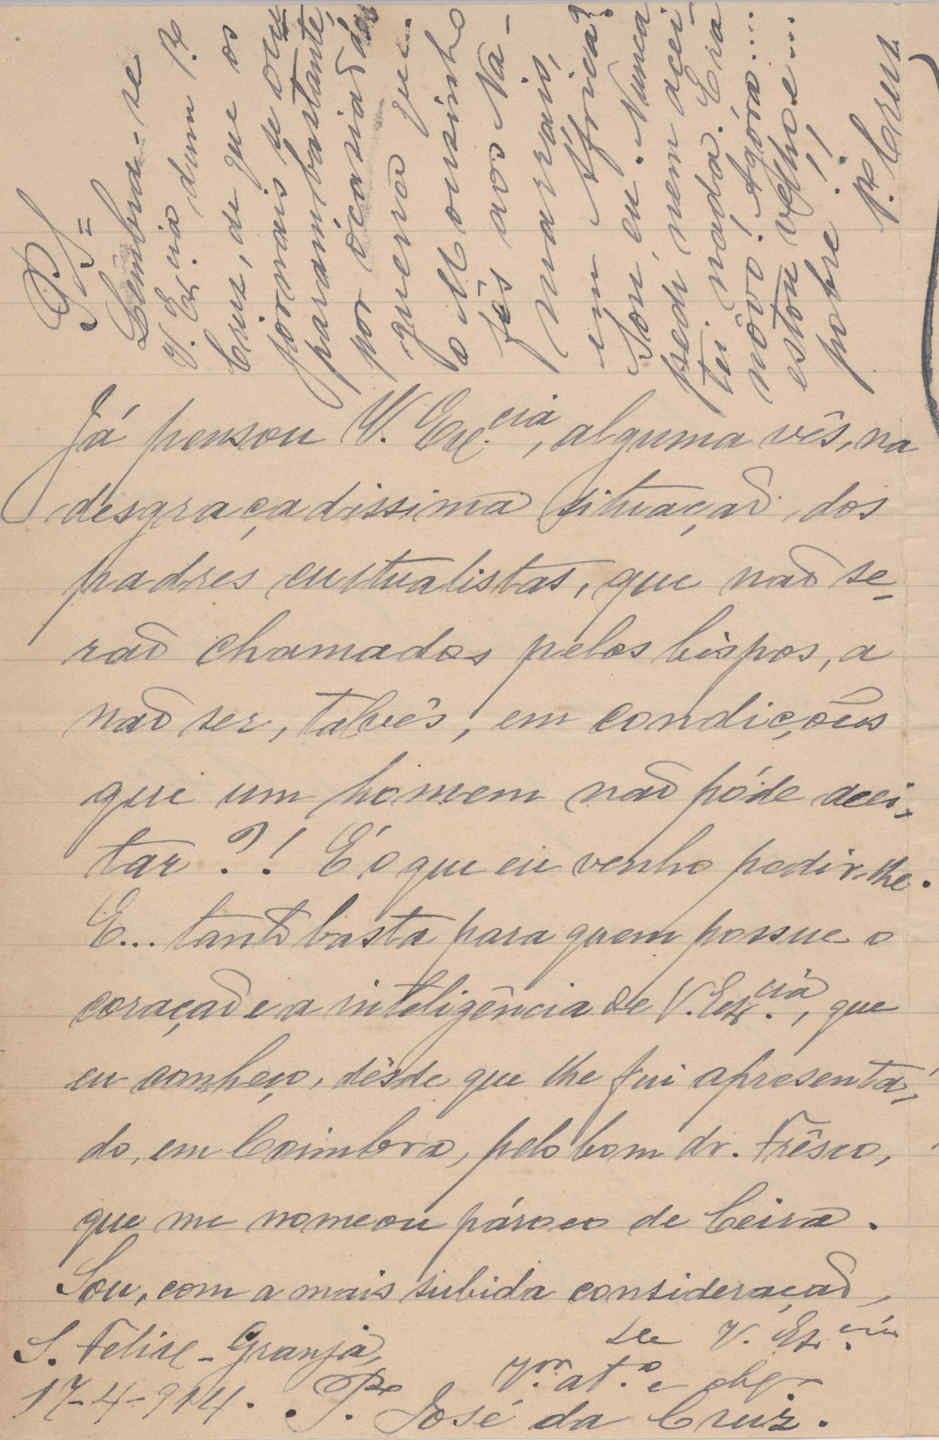 Já pensou V. Ex.cia, alguma vês, na
desgraçadissima situação dos
padres cultualistas, que não se-
rão chamados pelos bispos, a
não ser, talvês, em condições
que um homem não póde acei-
tar?! É o que eu venho pedir-lhe.
E... tanto basta para quem possue o
coração e a inteligência de V. Ex.cia, que
eu conheço, dêsde que lhe fui apresenta-
do, em Coimbra, pelo bom dr. Frêsco,
que me nomeou pároco de Ceira.
Sou, com a mais subida consideração,
de V. Ex.cia
V.or at.o e obg.
S. Felix - Granja,
17-4-914. P.e José da Cruz.
PS=
Lembra-se
V. Ex.cia dum P.e
Cruz, de que os
jornais se ocu
param bastante,
por ocasião da
guerra que
o Mousinho
fês aos Na-
marrais,
em Africa?
Sou eu. Nunca
pedi, nem acei-
tei nada. Era
nôvo! Agóra...
estou velho e...
pobre!!
P.e Cruz